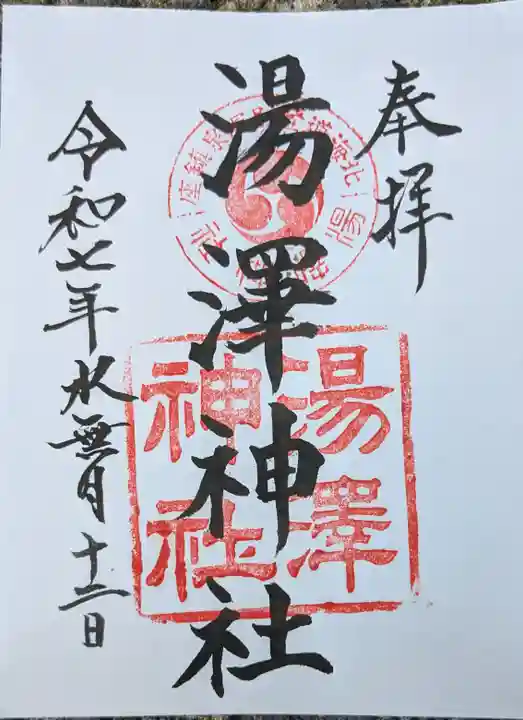 奉拝
湯澤神社
令和七年水無月十二日
湯澤
神社